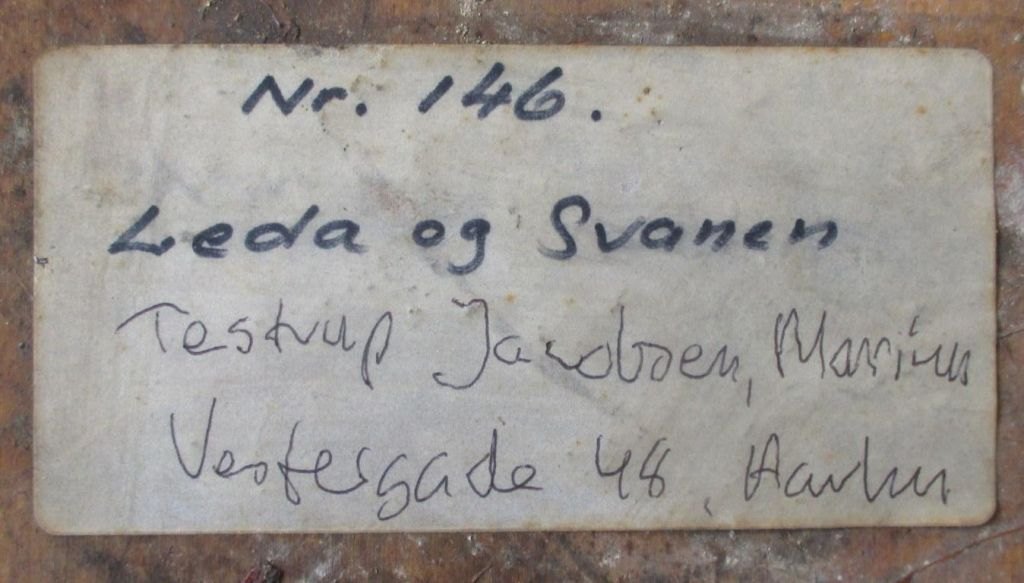 Nr. 146.
Leda og Svanen
Testrup Jacobsen, Marius
Vestergade 48, Aarhus